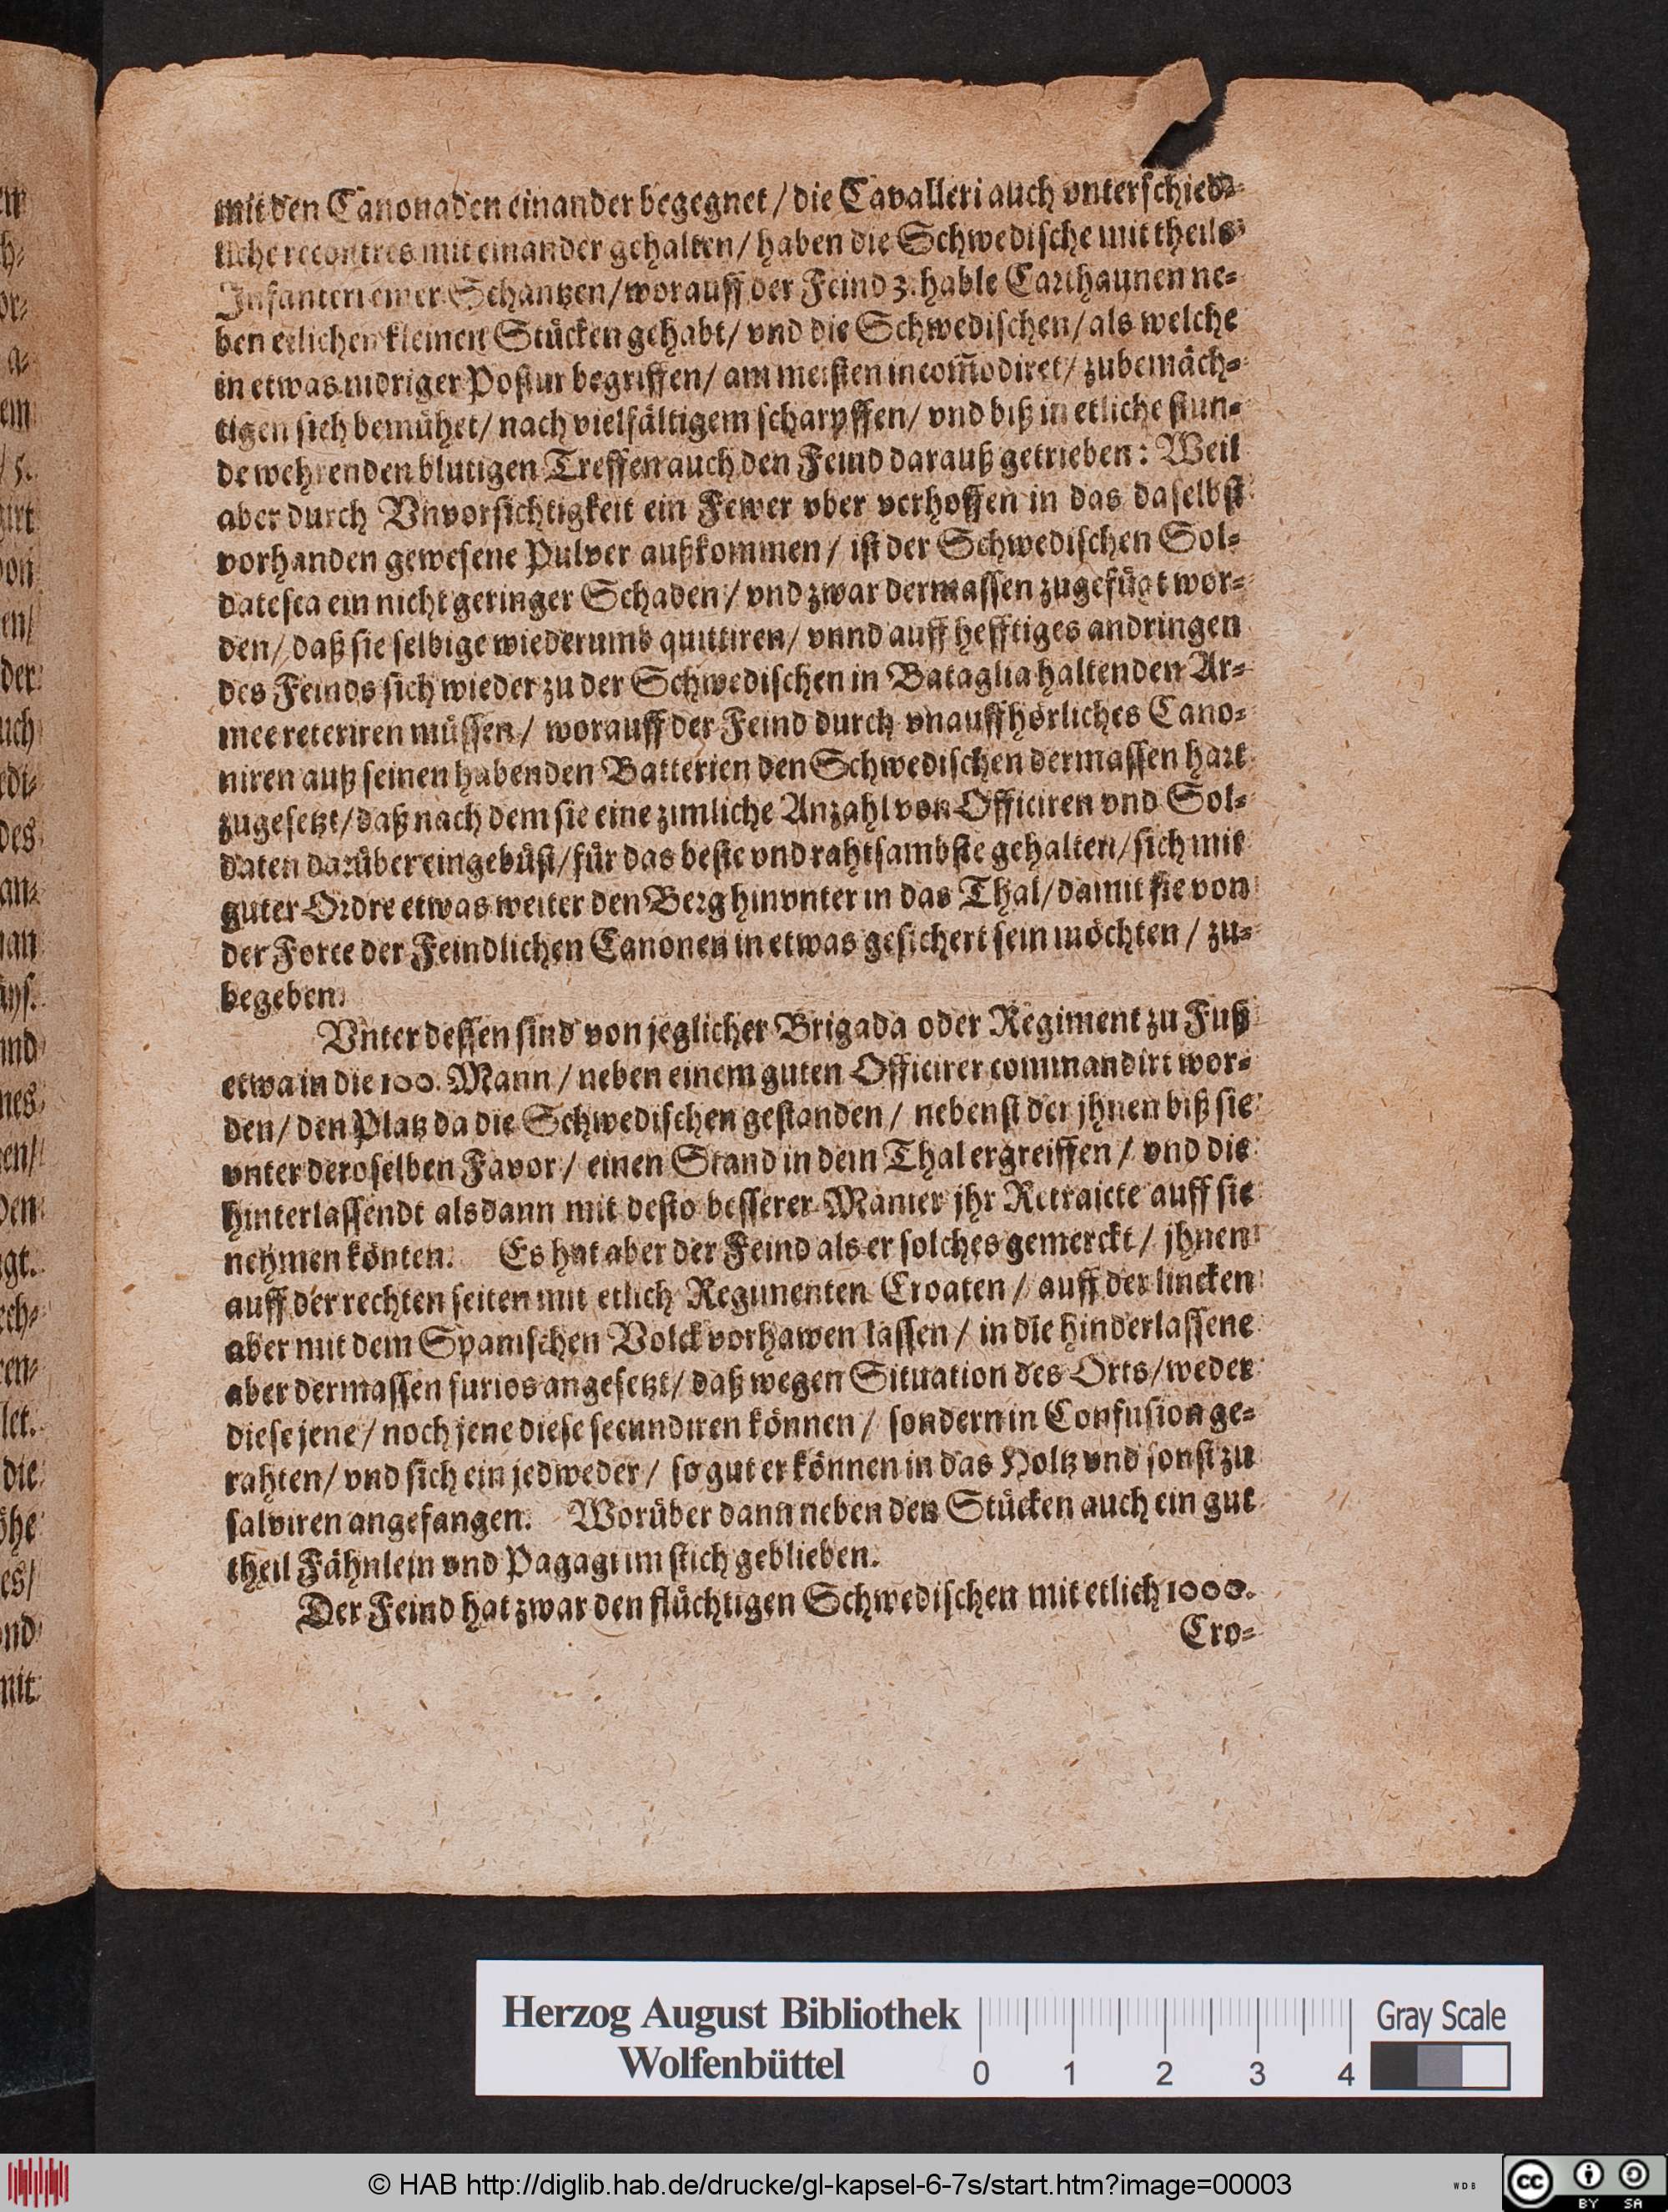 mit den Canonaden einander begegnet / die Cavalleri auch vnterschied-
liche recontres mit einander gehalten / haben die Schwedische mit theils
Infanteri einer Schantzen / worauff der Feind 3. hable Carthaunen ne-
ben etlichen kleinen Stücken gehabt / vnd die Schwedischen / als welche
in etwas nidriger Postur begriffen / am meisten incom̃odiret / zubemäch-
tigen sich bemühet / nach vielfältigem scharpffen / vnd biß in etliche stun-
de wehrenden blutigen Treffen auch den Feind darauß getrieben: Weil
aber durch Vnvorsichtigkeit ein Fewer vber verhoffen in das daselbst
vorhanden gewesene Pulver außkommen / ist der Schwedischen Sol-
datesca ein nicht geringer Schaden / vnd zwar dermassen zugefügt wor-
den / daß sie selbige wiederumb quittiren / vnnd auff hefftiges andringen
des Feinds sich wieder zu der Schwedischen in Bataglia haltenden Ar-
mee reteriren müssen / worauff der Feind durch vnauffhörliches Cano-
niren auß seinen habenden Batterien den Schwedischen dermassen hart
zugesetzt / daß nach dem sie eine zimliche Anzahl von Officiren vnd Sol-
daten darüber eingebüst / für das beste vnd rahtsambste gehalten / sich mit
guter Ordre etwas weiter den Berg hinvnter in das Thal / damit sie von
der Force der Feindlichen Canonen in etwas gesichert sein möchten / zu-
begeben.
Vnter dessen sind von jeglicher Brigada oder Regiment zu Fuß
etwa in die 100. Mann / neben einem guten Officirer commandirt wor-
den / den Platz da die Schwedischen gestanden / nebenst der jhnen biß sie
vnter deroselben Favor / einen Stand in dem Thal ergreiffen / vnd die
hinterlassendt alsdann mit desto besserer Manier jhr Retraicte auff sie
nehmen könten. Es hat aber der Feind als er solches gemerckt / jhnen
auff der rechten seiten mit etlich Regimenten Croaten / auff der lincken
aber mit dem Spanischen Volck vorhawen lassen / in die hinderlassene
aber dermassen furios angesetzt / daß wegen Situation des Orts / weder
diese jene / noch jene diese secundiren können / sondern in Confusion ge-
rahten / vnd sich ein jedweder / so gut er können in das Holtz vnd sonst zu
salviren angefangen. Worüber dann neben den Stücken auch ein gut
theil Fähnlein vnd Pagagi im stich geblieben.
Der Feind hat zwar den flüchtigen Schwedischen mit etlich 1000.
Cro-
Herzog August Bibliothek
Wolfenbüttel
0 1 2 3 4
Gray Scale
© HAB http://diglib.hab.de/drucke/gl-kapsel-6-7s/start.htm?image=00003
WDB
cc BY SA